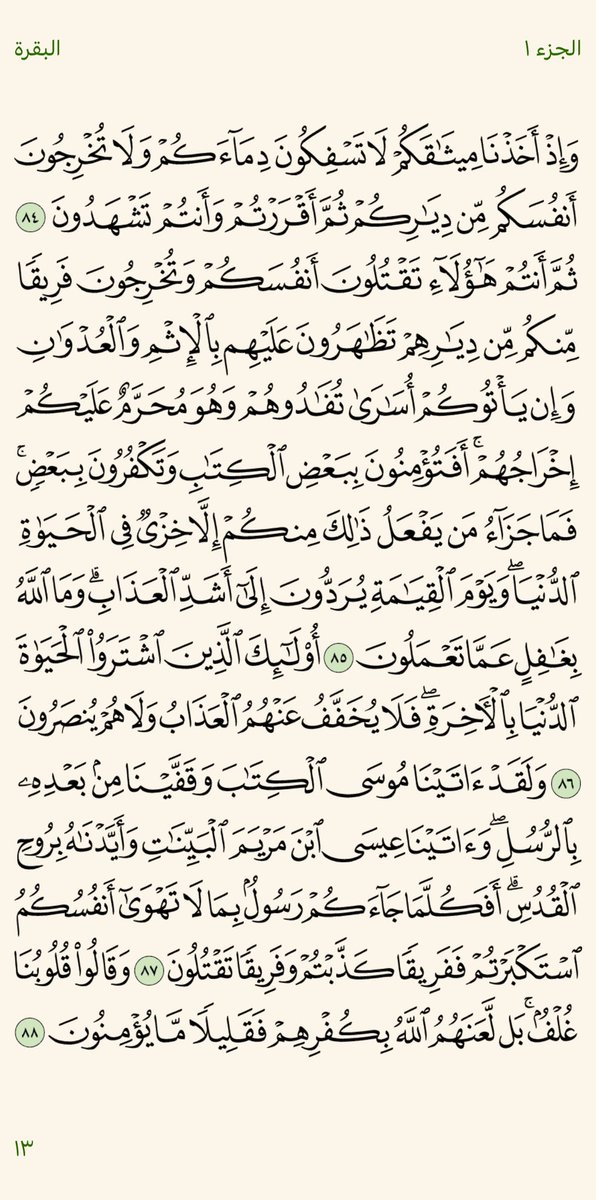 الجزء ١
البقرة
وَإِذْ أَخَذْنَا مِيثَٰقَكُمْ لَا تَسْفِكُونَ دِمَآءَكُمْ وَلَا تُخْرِجُونَ
أَنفُسَكُم مِّن دِيَٰرِكُمْ ثُمَّ أَقْرَرْتُمْ وَأَنتُمْ تَشْهَدُونَ ٨٤
ثُمَّ أَنتُمْ هَٰٓؤُلَآءِ تَقْتُلُونَ أَنفُسَكُمْ وَتُخْرِجُونَ فَرِيقًا
مِّنكُم مِّن دِيَٰرِهِمْ تَظَٰهَرُونَ عَلَيْهِم بِٱلْإِثْمِ وَٱلْعُدْوَٰنِ
وَإِن يَأْتُوكُمْ أُسَٰرَىٰ تُفَٰدُوهُمْ وَهُوَ مُحَرَّمٌ عَلَيْكُمْ
إِخْرَاجُهُمْ ۚ أَفَتُؤْمِنُونَ بِبَعْضِ ٱلْكِتَٰبِ وَتَكْفُرُونَ بِبَعْضٍ ۚ
فَمَا جَزَآءُ مَن يَفْعَلُ ذَٰلِكَ مِنكُمْ إِلَّا خِزْىٌ فِى ٱلْحَيَوٰةِ
ٱلدُّنْيَا ۖ وَيَوْمَ ٱلْقِيَٰمَةِ يُرَدُّونَ إِلَىٰٓ أَشَدِّ ٱلْعَذَابِ ۗ وَمَا ٱللَّهُ
بِغَٰفِلٍ عَمَّا تَعْمَلُونَ ٨٥ أُو۟لَٰٓئِكَ ٱلَّذِينَ ٱشْتَرَوُا۟ ٱلْحَيَوٰةَ
ٱلدُّنْيَا بِٱلْءَاخِرَةِ ۖ فَلَا يُخَفَّفُ عَنْهُمُ ٱلْعَذَابُ وَلَا هُمْ يُنصَرُونَ
٨٦ وَلَقَدْ ءَاتَيْنَا مُوسَى ٱلْكِتَٰبَ وَقَفَّيْنَا مِنۢ بَعْدِهِۦ
بِٱلرُّسُلِ ۖ وَءَاتَيْنَا عِيسَى ٱبْنَ مَرْيَمَ ٱلْبَيِّنَٰتِ وَأَيَّدْنَٰهُ بِرُوحِ
ٱلْقُدُسِ ۗ أَفَكُلَّمَا جَآءَكُمْ رَسُولٌۢ بِمَا لَا تَهْوَىٰٓ أَنفُسُكُمُ
ٱسْتَكْبَرْتُمْ فَفَرِيقًا كَذَّبْتُمْ وَفَرِيقًا تَقْتُلُونَ ٨٧ وَقَالُوا۟ قُلُوبُنَا
غُلْفٌۢ ۚ بَل لَّعَنَهُمُ ٱللَّهُ بِكُفْرِهِمْ فَقَلِيلًا مَّا يُؤْمِنُونَ ٨٨
١٣